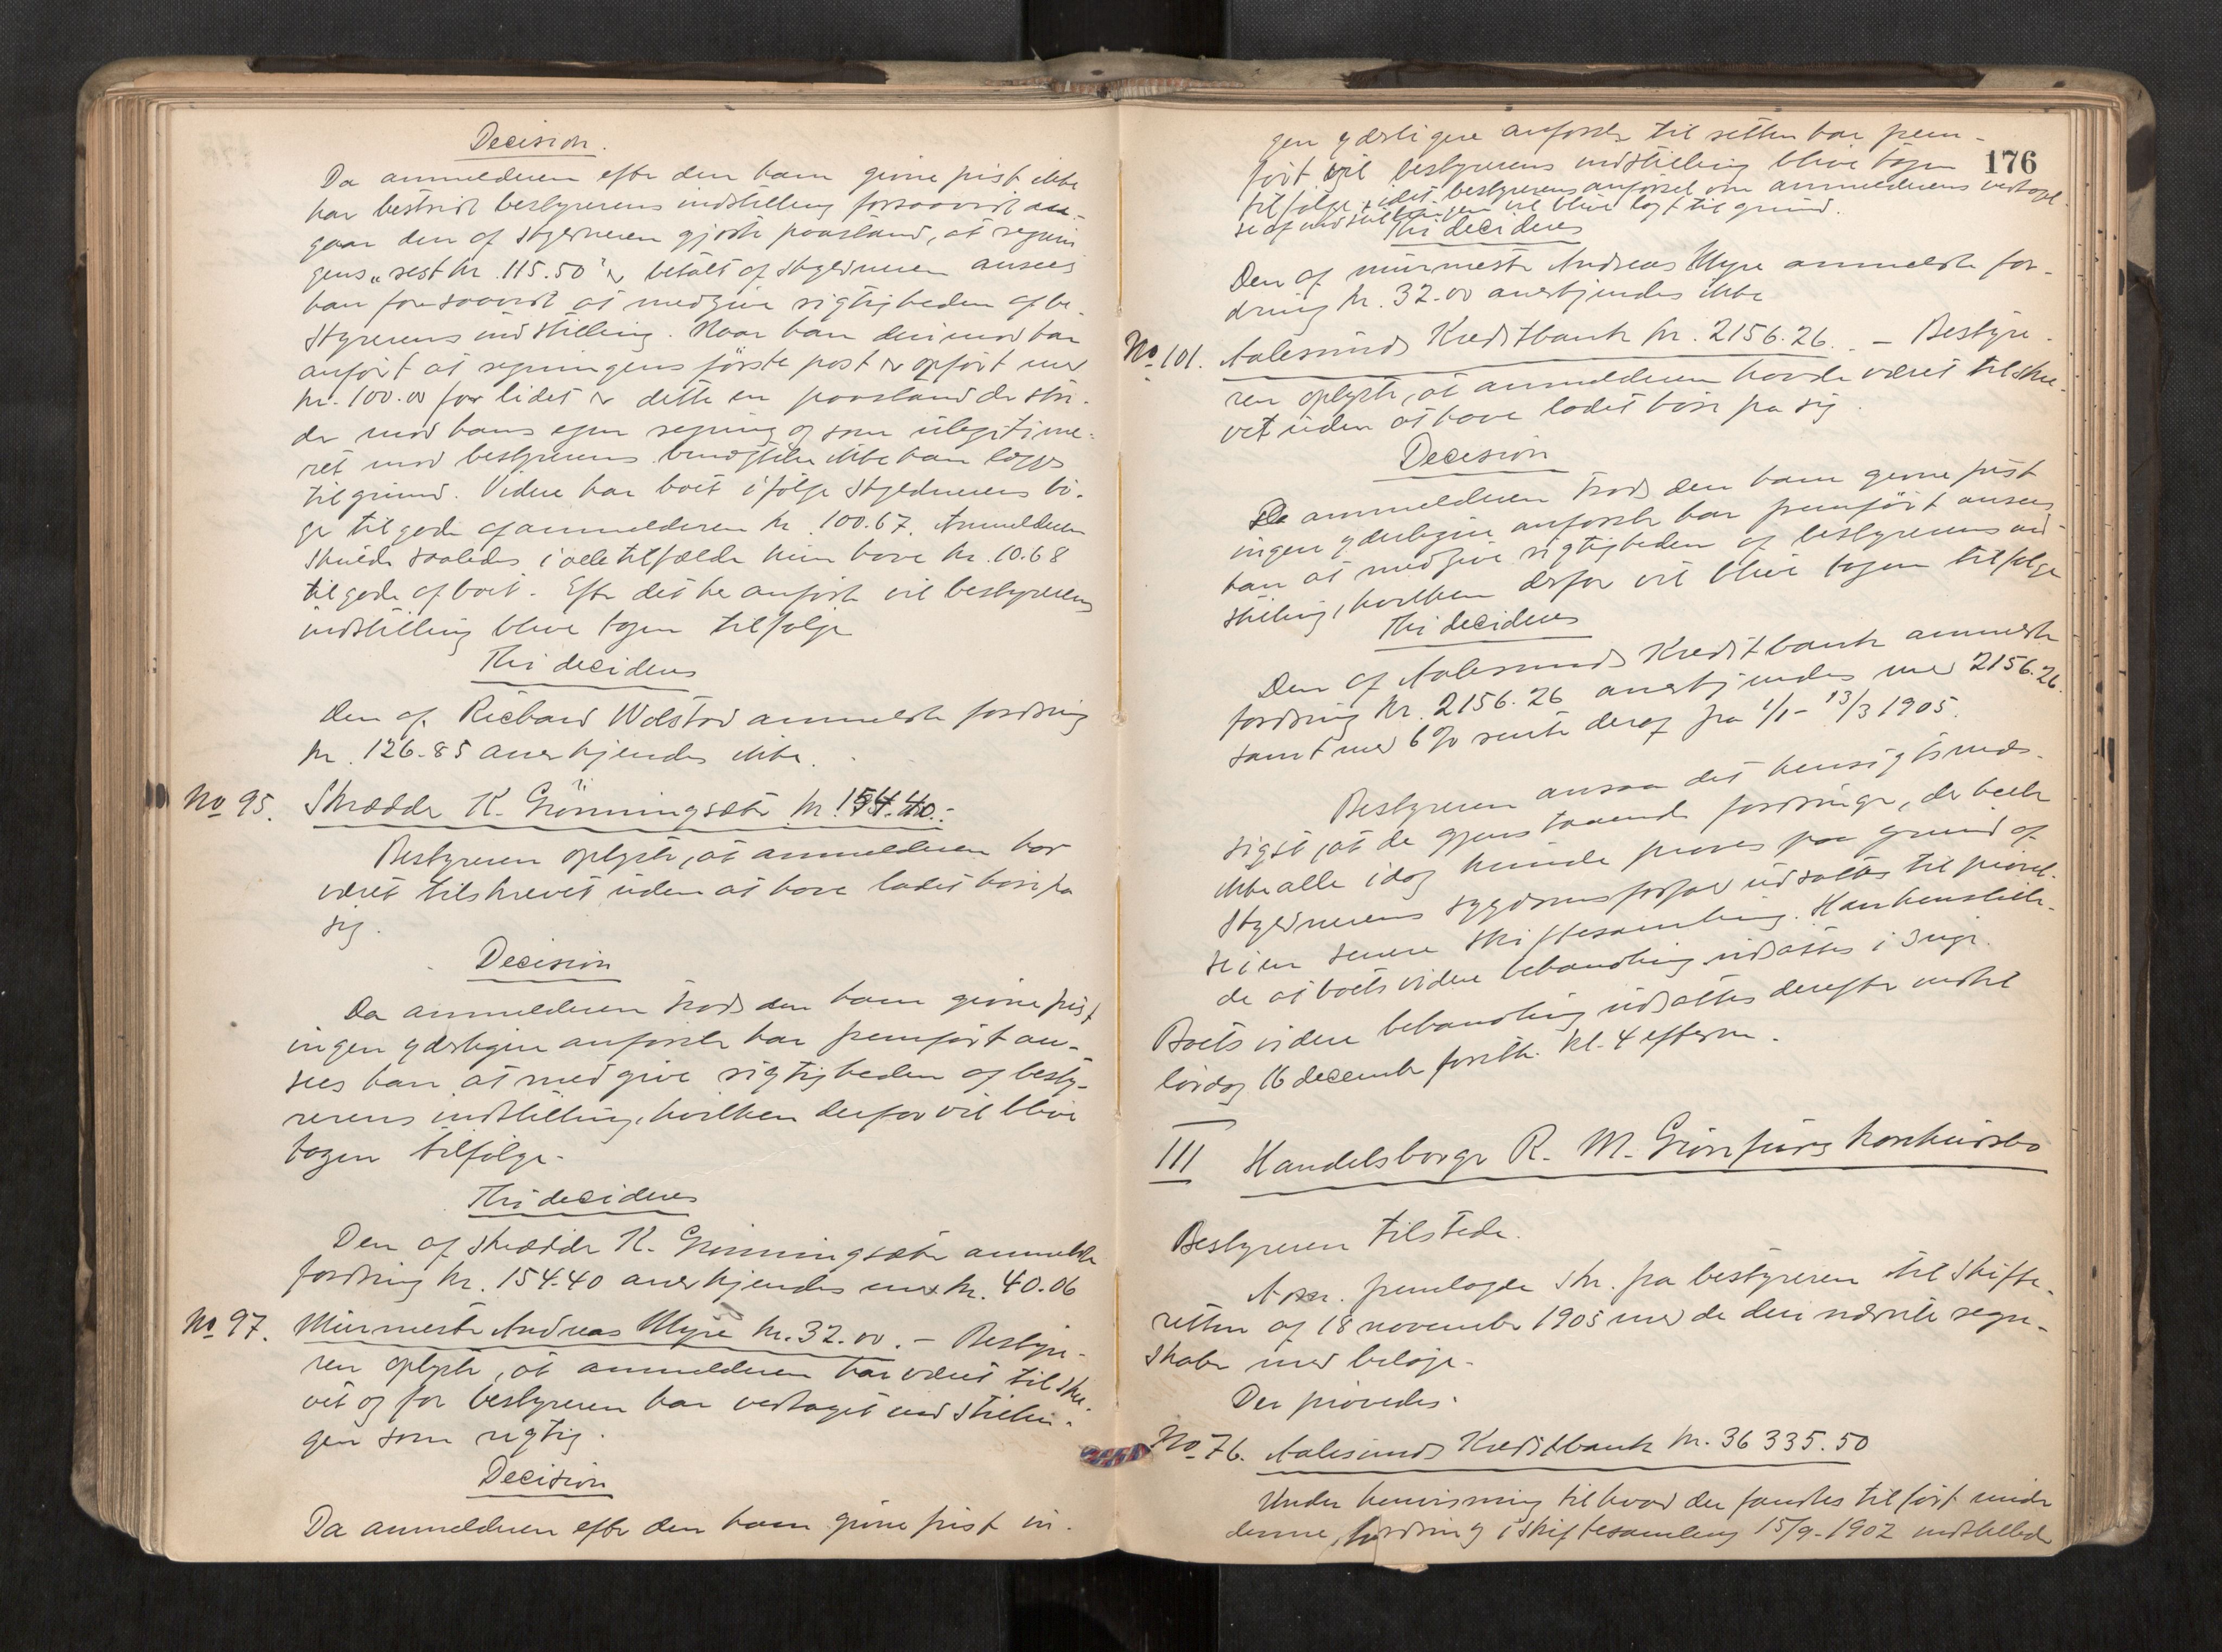 Decision.
Da anmelderen efter den ham givne frist ikke
har bestridt bestyrerens indstilling forsaavidt an-
gaar den af skyldneren gjorte paastand, at regnin
gens „rest kr. 115.50" er betalt af skyldneren ansees
han forsaavidt at medgive rigtigheden af be-
styrerens indstilling. Naar han derimod har
anført at regningens første post er opført med
kr. 100.00 for lidet er dette en paastand der stri-
der mod hans egen regning og som ulegitime-
ret mod bestyrerens benægtelse ikke kan lægges
til grund. Videre har boet ifølge skyldnerens bø-
ger tilgode af anmelderen kr. 100.67. Anmelderen
skulde saaledes i alle tilfælde kun have kr. 10.68
tilgode af boet. Efter det her anførte vil bestyrerens
indstilling blive tagen tilfølge
Thi decideres
Den af Richard Wolstad anmeldte fordring
kr. 126.85 anerkjendes ikke.
No 95. Skrædder K. Grönningsæter kr. 154.40.-
Bestyreren oplyste, at anmelderen har
været tilskrevet uden at have ladet høre fra
sig.
Decision
Da anmelderen trods den ham givne frist
ingen yderligere anførsler har fremført an-
sees han at medgive rigtigheden af besty-
rerens indstilling, hvilken derfor vil blive
tagen tilfølge.
Thi decideres
Den af skrædder K. Grönningsæter anmeldte
fordring kr. 154.40 anerkjendes med kr. 40.06
No 97. Murmester Andreas Myre kr. 32.00. - Bestyre-
ren oplyste, at anmelderen har været tilskre-
vet og for bestyreren har vedtaget indstillin-
gen som rigtig.
Decision
Da anmelderen efter den ham givne frist in-
176
gen yderligere anførsler til retten har frem-
ført vil bestyrerens indstilling blive tagen
tilfølge, idet bestyrerens anførsel om anmelderens vedtagel-
se af indstillingen vil blive lagt til grund.
Thi decideres
Den af murmester Andreas Myre anmeldte for-
dring kr. 32.00 anerkjendes ikke
No 101. Aalesunds Kreditbank kr. 2156.26. - Bestyre-
ren oplyste, at anmelderen havde været tilskre-
vet uden at have ladet høre fra sig.
Decision
Da anmelderen trods den ham givne frist
ingen yderligere anførsler har fremført ansees
han at medgive rigtigheden af bestyrerens ind-
stilling, hvilken derfor vil blive tagen tilfølge
Thi decideres
Den af Aalesunds Kreditbank anmeldte
fordring kr. 2156.26 anerkjendes med 2156.26
samt med 6% rente deraf fra 1/1 - 13/3 1905.
Bestyreren ansaa det hensigtsmæs-
sigst, at de gjenstaaende fordringer, der heller
ikke alle idag kunde prøves paa grund af
skyldnerens sygdomsforfald udsattes til prøvel-
se i en senere skiftesamling. Han henstille-
de at boets videre behandling udsattes i 3 uger.
Boets videre behandling udsattes derefter indtil
lørdag 16 december førstk. kl. 4 efterm.
III Handelsborger R. M. Grönfurs konkursbo
Bestyreren tilstede.
Adm. fremlagde skr. fra bestyreren til skifte-
retten af 18 november 1905 med de deri nævnte regn-
skaber med bilage.
Der prøvedes:
No 76. Aalesunds Kreditbank kr. 36 335.50
Under henvisning til hvad der fandtes tilført under
denne fordring i skiftesamling 15/9-1902 indstillede